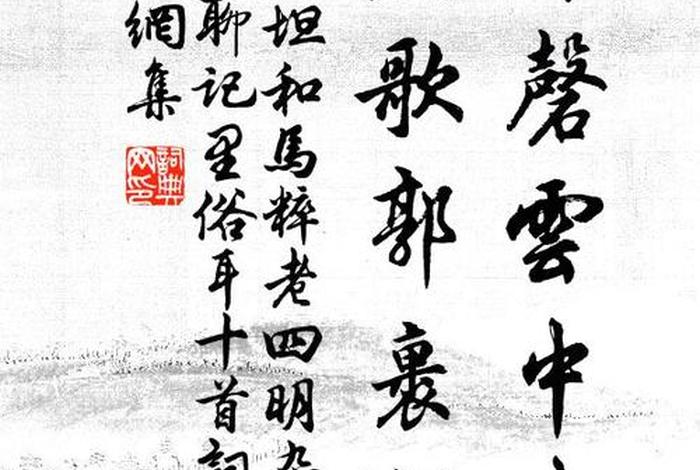 磬雲中
歌郭裏
坦和馬粹老四明杂
聊記里俗耳十首詞
網集
詞典网印